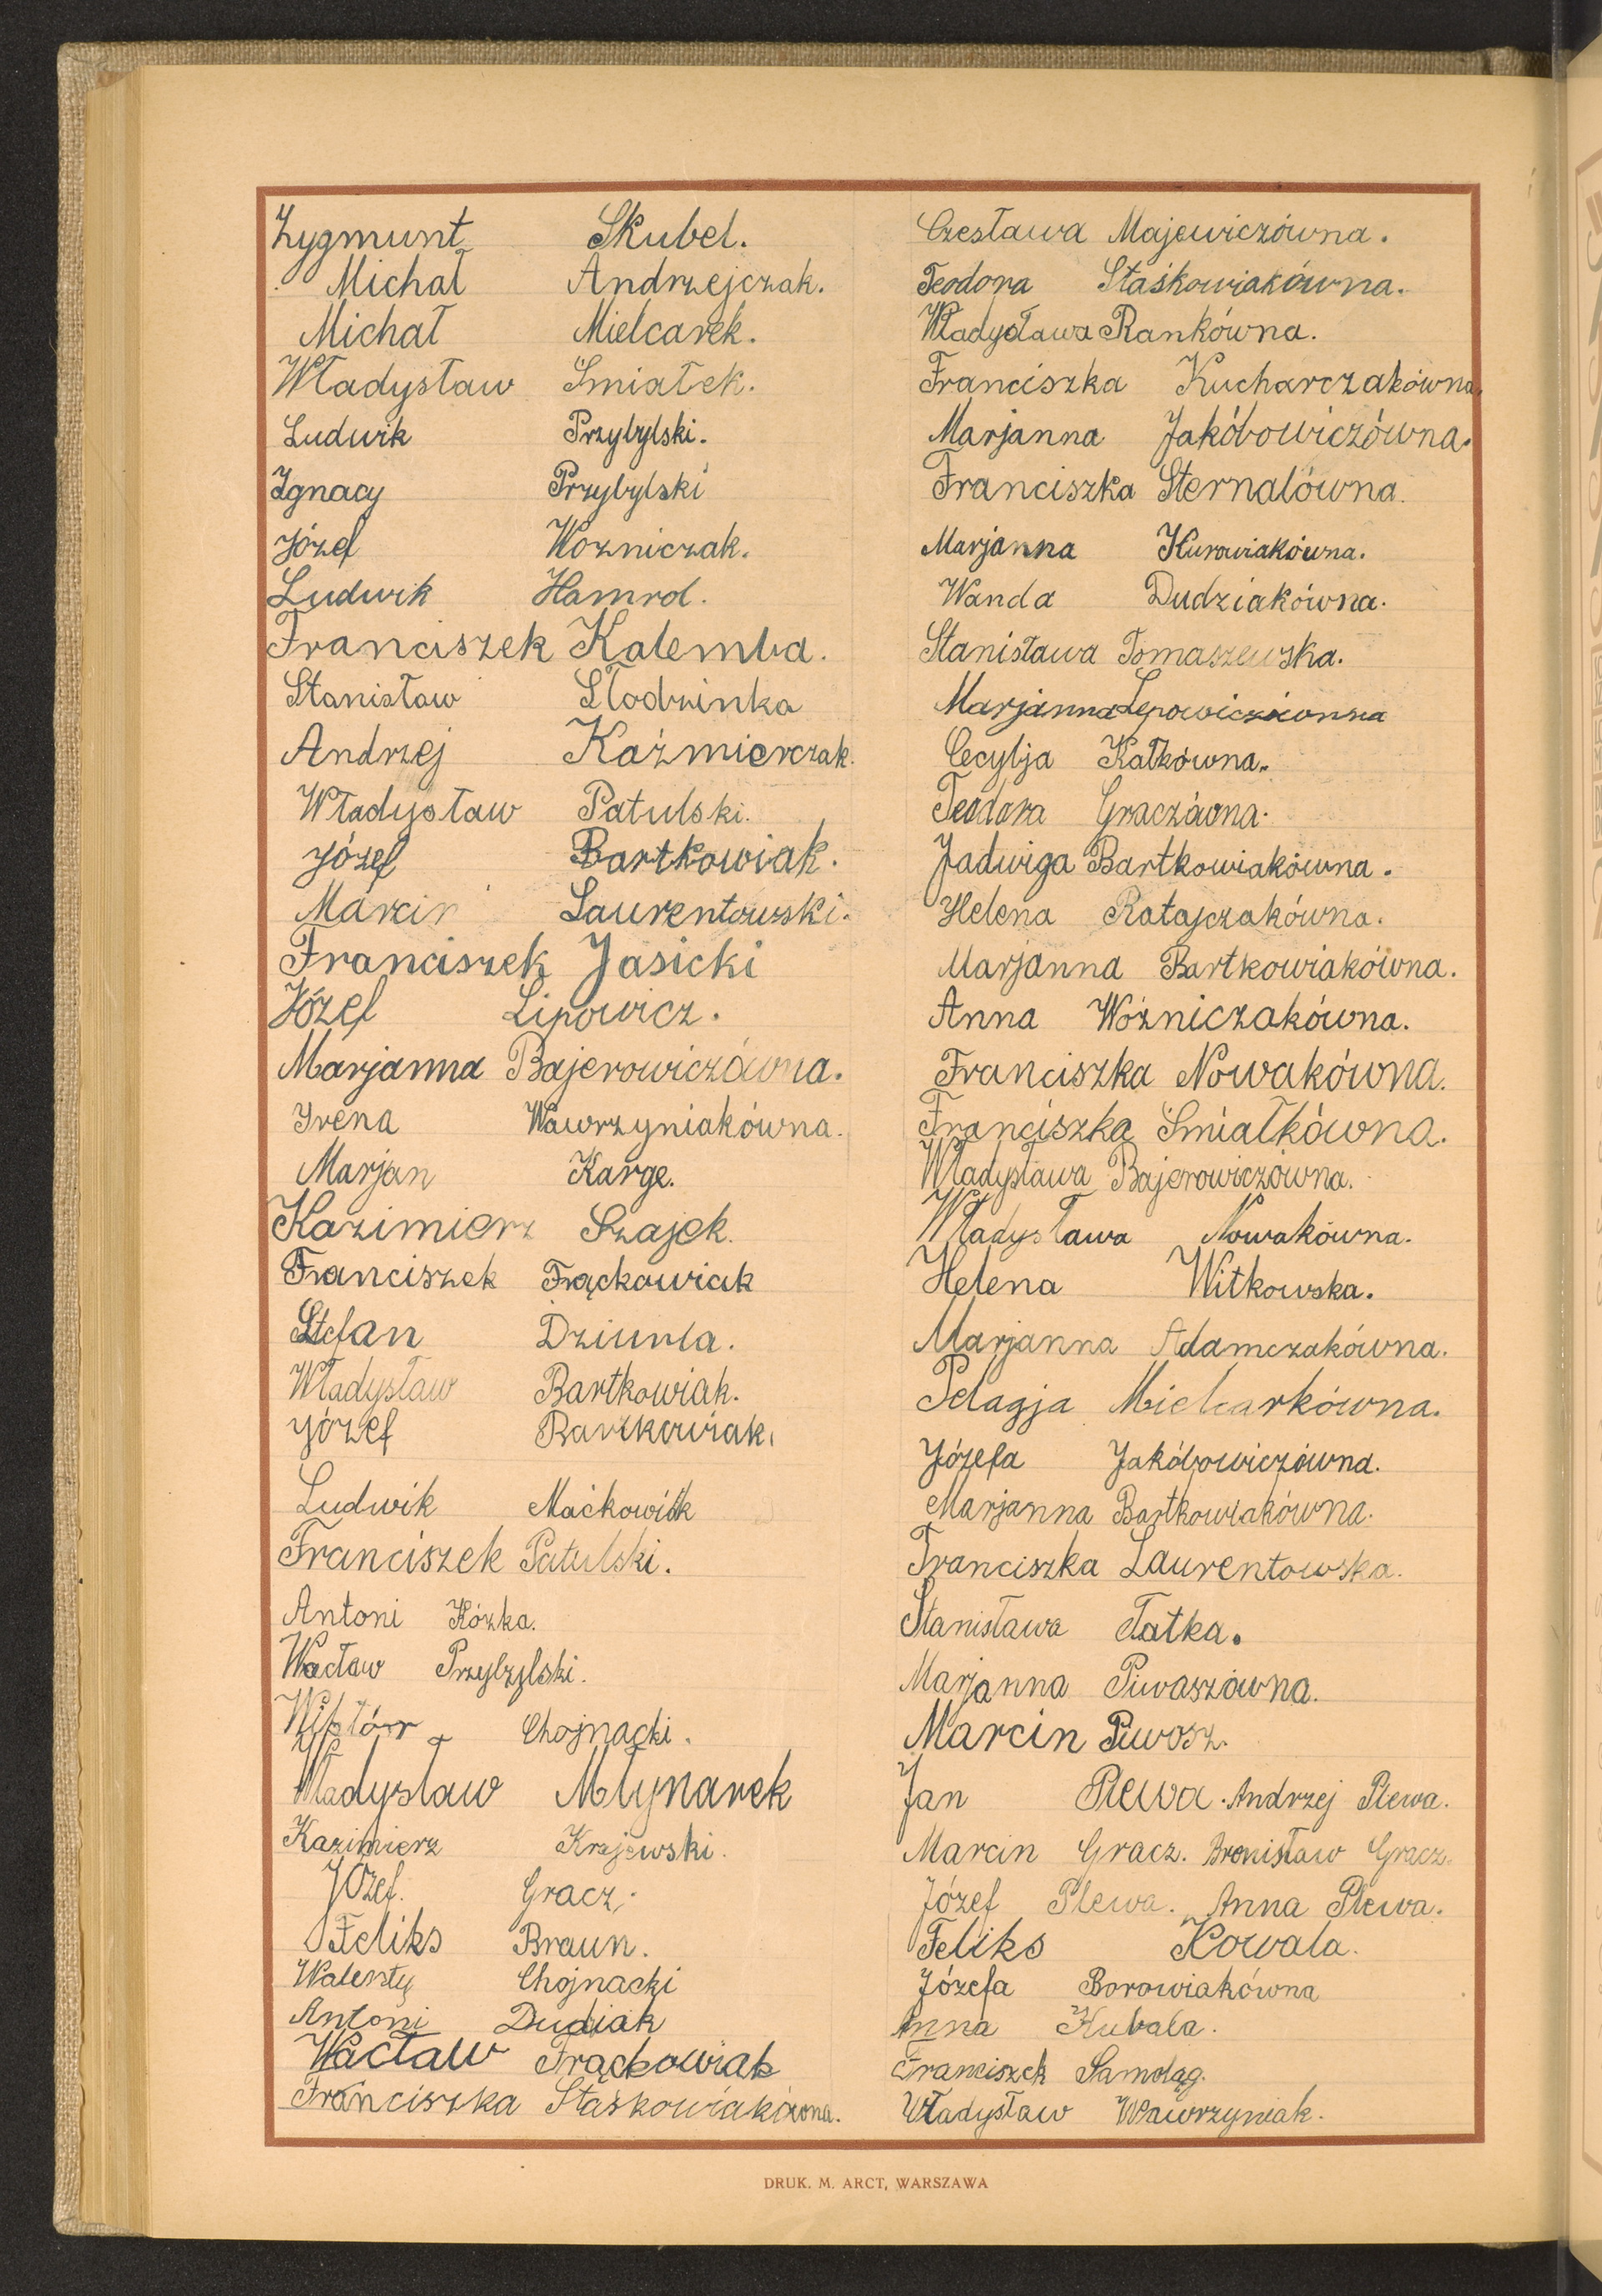 Zygmunt Skubel.
Michał Andrzejczak.
Michał Mielcarek.
Władysław Smiałek.
Ludwik Przybylski.
Ignacy Przybylski
Józef Wozniczak.
Ludwik Hamrol.
Franciszek Kalemba.
Stanisław Słodzinka
Andrzej Kaźmierczak.
Władysław Patulski.
Józef Bartkowiak.
Marcin Laurentowski.
Franciszek Jasicki
Józef Lipowicz.
Marjanna Bajerowiczówna.
Irena Wawrzyniakówna.
Marjan Karge.
Kazimierz Szajek.
Franciszek Frąckowiak
Stefan Dziumla.
Władysław Bartkowiak.
Józef Bartkowiak.
Ludwik Maćkowiak
Franciszek Patulski.
Antoni Kózka.
Wacław Przybylski.
Wiktór Chojnacki.
Władysław Młynarek
Kazimierz Krajewski.
Józef. Gracz.
Feliks Braun.
Walenty Chojnacki
Antoni Dudiak
Wacław Frąckowiak
Franciszka Staśkowiakówna.
Czesława Majewiczówna.
Teodora Staśkowiakówna.
Władysława Rankówna.
Franciszka Kucharczakówna.
Marjanna Jakóbowiczówna.
Franciszka Sternalówna.
Marjanna Kurowiakówna.
Wanda Dudziakówna.
Stanisława Tomaszewska.
Marjanna Lepowiczówna
Cecylja Kałkówna.
Teodora Graczówna.
Jadwiga Bartkowiakówna.
Helena Ratajczakówna.
Marjanna Bartkowiakówna.
Anna Wózniczakówna.
Franciszka Nowakówna.
Franciszka Smiałkówna.
Władysława Bajerowiczówna.
Władysława Nowakówna.
Helena Witkowska.
Marjanna Adamczakówna.
Pelagja Mielcarkówna.
Józefa Jakóbowiczówna.
Marjanna Bartkowiakówna.
Franciszka Laurentowska.
Stanisława Tatka.
Marjanna Piwoszówna.
Marcin Piwosz.
Jan Plewa. Andrzej Plewa.
Marcin Gracz. Bronisław Gracz.
Józef Plewa. Anna Plewa.
Feliks Kowala.
Józefa Borowiakówna
Anna Kubala.
Franciszek Samoląg.
Władysław Wawrzyniak.
DRUK. M. ARCT, WARSZAWA